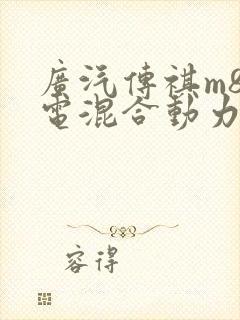 廣汽傳祺m8
電混合動力
容得